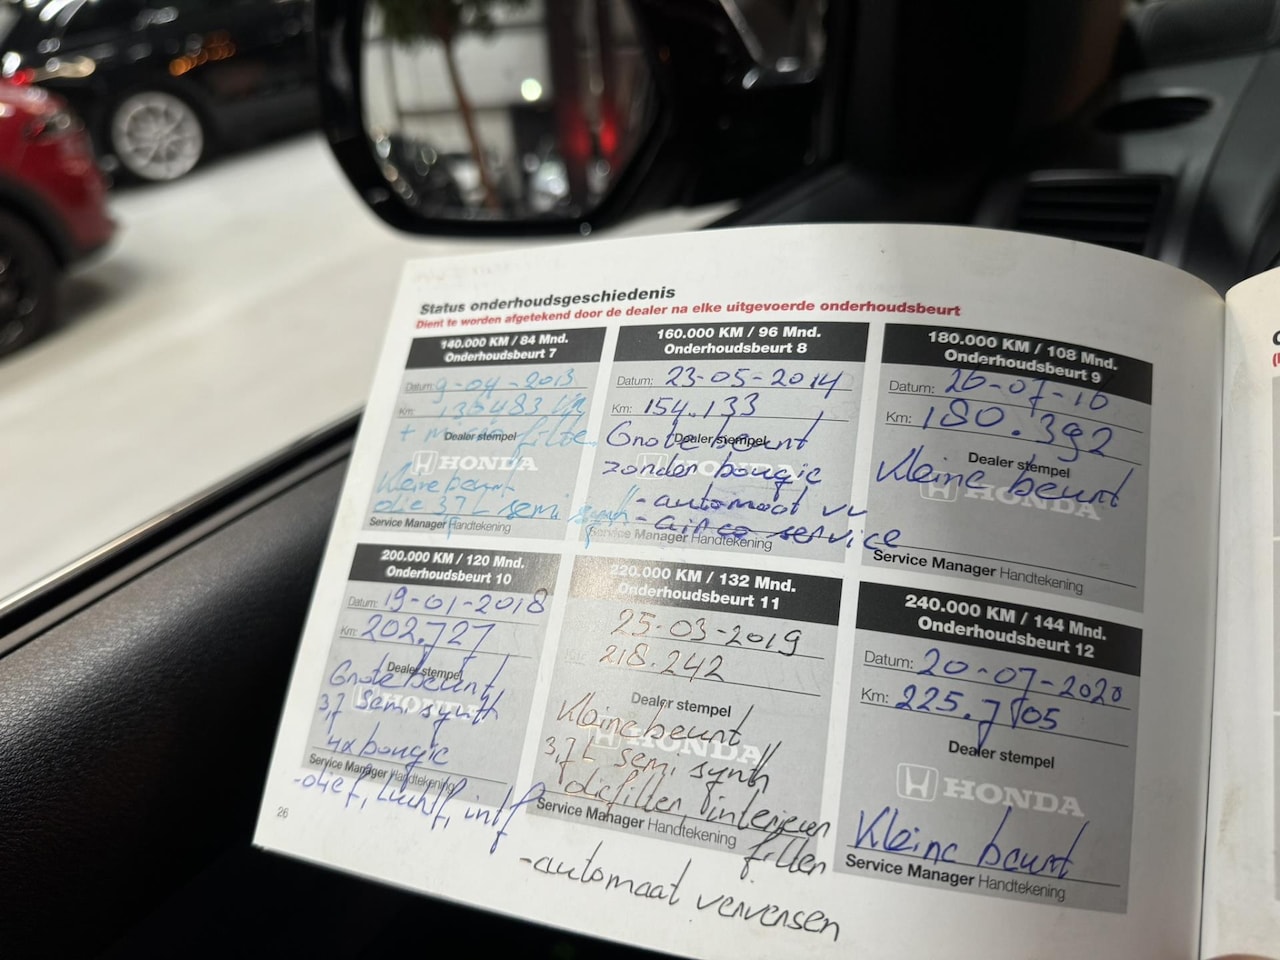 Status onderhoudsgeschiedenis
Dient te worden afgetekend door de dealer na elke uitgevoerde onderhoudsbeurt
140.000 KM / 84 Mnd.
Onderhoudsbeurt 7
Datum: 9-04-2013
Km:
+ microfilter
Dealer stempel
HONDA
Kleine beurt
olie 3,7 L semi synth
Service Manager Handtekening
160.000 KM / 96 Mnd.
Onderhoudsbeurt 8
Datum: 23-05-2014
Km: 154.133
Grote beurt
Dealer stempel
zonder bougie
- automaat vv
- airco service
Service Manager Handtekening
180.000 KM / 108 Mnd.
Onderhoudsbeurt 9
Datum: 26-07-16
Km: 180.392
Dealer stempel
Kleine beurt
HONDA
Service Manager Handtekening
200.000 KM / 120 Mnd.
Onderhoudsbeurt 10
Datum: 19-01-2018
Km: 202.727
Dealer stempel
Grote beurt
HONDA
3,7 semi synth
4x bougie
Service Manager Handtekening
-olief, luchtf, intf
220.000 KM / 132 Mnd.
Onderhoudsbeurt 11
25-03-2019
Km: 218.242
Dealer stempel
Kleine beurt
HONDA
3,7 L semi synth
oliefilter, interieur
filter
Service Manager Handtekening
-automaat verversen
240.000 KM / 144 Mnd.
Onderhoudsbeurt 12
Datum: 20-07-2020
Km: 225.705
Dealer stempel
HONDA
Kleine beurt
Service Manager Handtekening
26